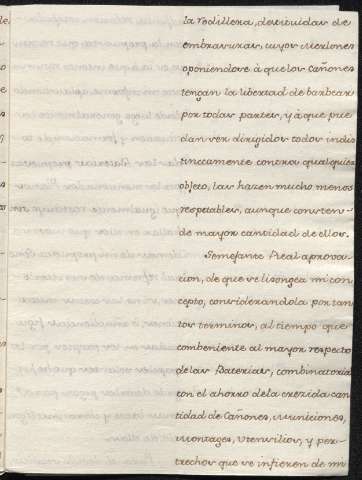 la rodillera, destituidas de
embrasuras, cuyos merlones
oponiendose à que los cañones
tengan la libertad de barbear
por todas partes, y à que pue
dan ser dirigidos todos indis
tinctamente contra qualquier
objeto, las hazen mucho menos
respetables, aunque consten
de mayor cantidad de ellos.
Semejante Real aprova-
cion, de que se lisongea mi con
cepto, considerandola por tan
tos terminos, al tiempo que
combeniente al mayor respecto
de las Baterias, combinatoria
con el ahorro dela crezida can
tidad de Cañones, municiones,
montages, utensilios, y per-
trechos que se infieren de mi